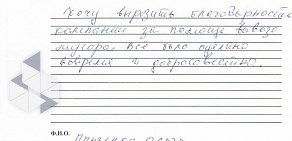 Хочу выразить благодарность
компании за помощь вывоз
мусора. Все было сделано
вовремя и добросовестно.
Ф.И.О.
Ольга